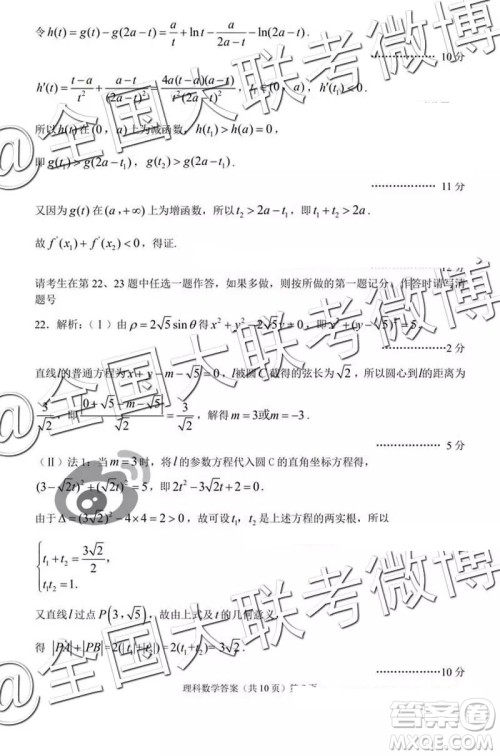 令h(t)=g(t)-g(2a-t)=a/t+lnt-a/(2a-t)-ln(2a-t).
10分
h'(t)=(t-a)/t²+(a-t)/(2a-t)²=4a(t-a)(a-t)/t²(2a-t)², t∈(0,a), h'(t)<0.
所以h(t)在(0,a)上为减函数, h(t₁)>h(a)=0,
即g(t₁)>g(2a-t₁), g(t₂)>g(2a-t₁).
11分
又因为g(t)在(a,+∞)上为增函数, 所以t₂>2a-t₁, 即t₁+t₂>2a.
故f'(x₁)+f'(x₂)<0, 得证.
12分
请考生在第22、23题中任选一题作答,如果多做,则按所做的第一题记分.作答时请写清
题号
22.解析:(Ⅰ)由ρ=2√5sinθ得x²+y²-2√5y=0, 即x²+(y-√5)²=5.
2分
直线l的普通方程为x+y-m-√5=0, l被圆C截得的弦长为√2, 所以圆心到l的距离为
3/√2, 即|0+√5-m-√5|/√2=3/√2, 解得m=3或m=-3.
5分
(Ⅱ)法1:当m=3时,将l的参数方程代入圆C的直角坐标方程得,
(3-√2t)²+(√2t)²=5, 即2t²-3√2t+2=0.
由于Δ=(3√2)²-4×4=2>0, 故可设t₁,t₂是上述方程的两实根, 所以
{t₁+t₂=3√2/2,
t₁t₂=1.
又直线l过点P(3,√5), 故由上式及t的几何意义,
得|PA|+|PB|=2(|t₁|+|t₂|)=2(t₁+t₂)=3√2.
10分
理科数学答案(共10页)
@全国大联考微博
@全国大联考微博
@全国大联考微博
答案圈